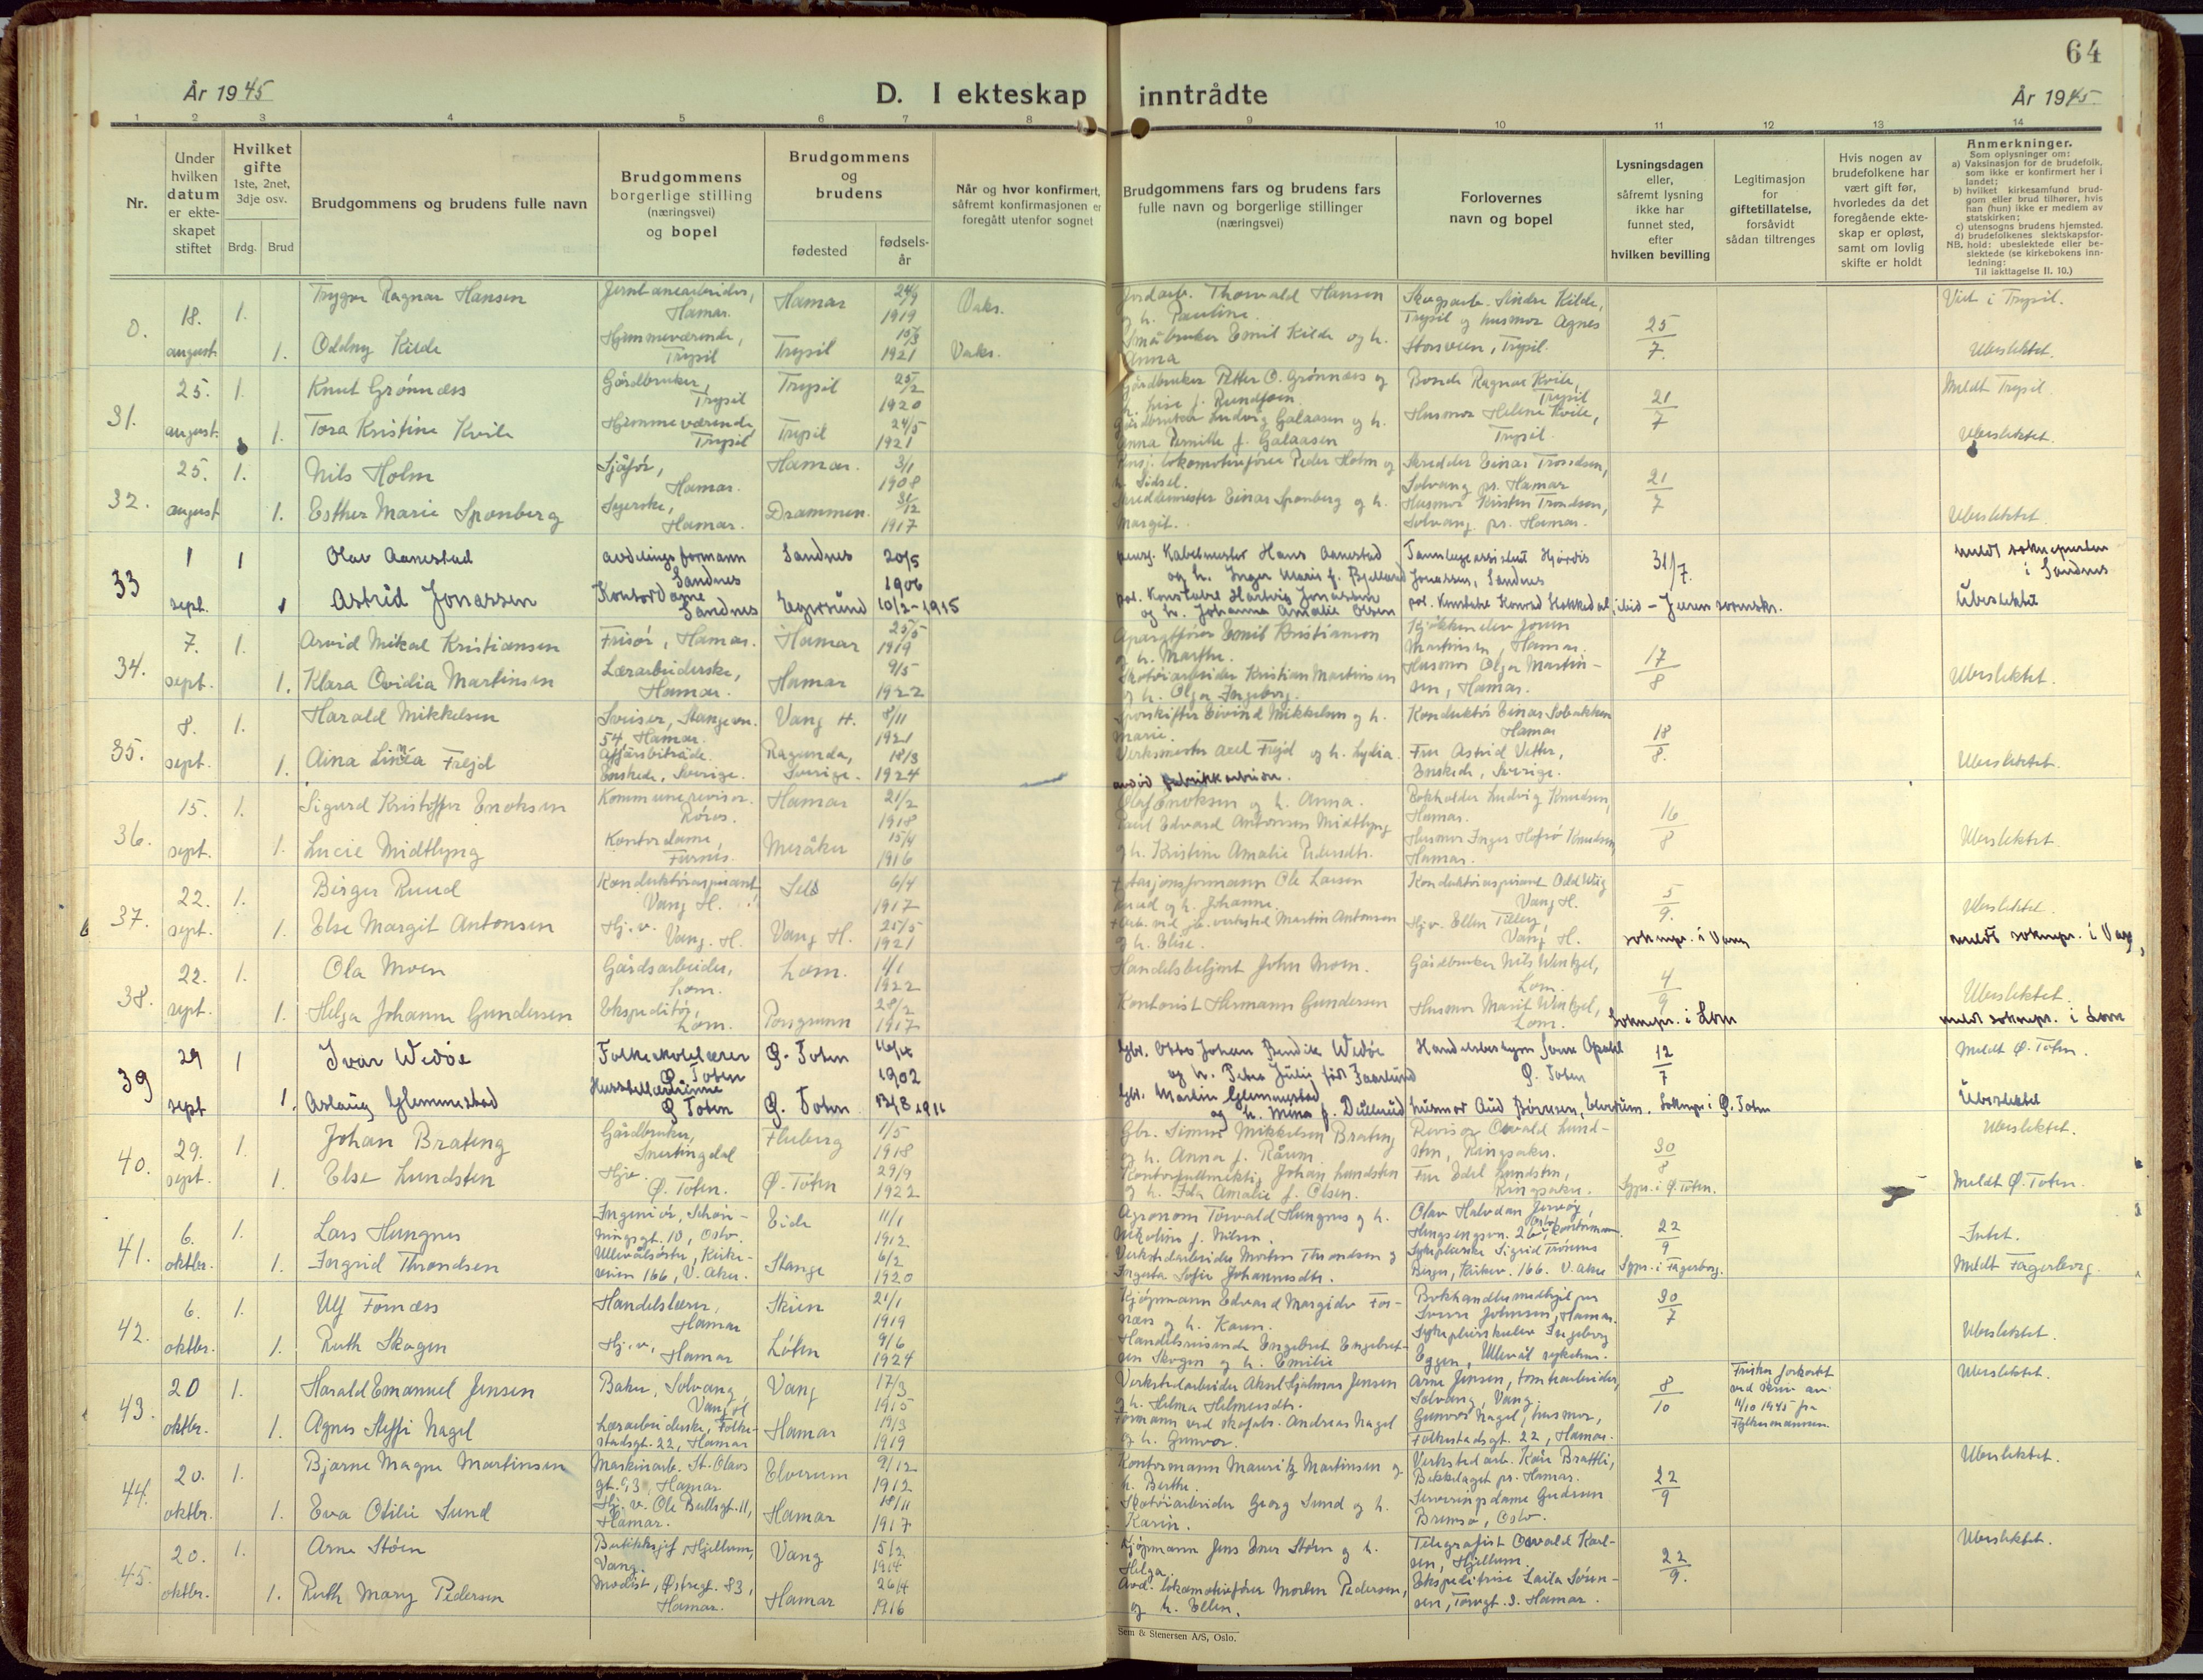 64
År 1945
D. I ekteskap inntrådte
År 1945
1 2 3 4 5 6 7 8 9 10 11 12 13 14
Nr.
Under hvilken datum er ekteskapet stiftet
Hvilket gifte
1ste, 2net, 3dje osv.
Brdg. Brud
Brudgommens og brudens fulle navn
Brudgommens borgerlige stilling (næringsvei) og bopel
Brudgommens og brudens
fødested
fødselsår
Når og hvor konfirmert, såfremt konfirmasjonen er foregått utenfor sognet
Brudgommens fars og brudens fars fulle navn og borgerlige stillinger (næringsvei)
Forlovernes navn og bopel
Lysningsdagen eller, såfremt lysning ikke har funnet sted, efter hvilken bevilling
Legitimasjon for giftetillatelse, forsåvidt sådan tiltrenges
Hvis nogen av brudefolkene har vært gift før, hvorledes da det foregående ekteskap er opløst, samt om lovlig skifte er holdt
Anmerkninger.
Som oplysninger om:
a) Vaksinasjon for de brudefolk, som ikke er konfirmert her i landet;
b) hvilket kirkesamfund brudgom eller brud tilhører, hvis han (hun) ikke er medlem av statskirken;
c) utensogns brudens hjemsted.
d) brudefolkenes slektskapsforhold: ubeslektede eller beslektede (se kirkebokens innledning:
NB. Til iakttagelse II. 10.)
18. august 1. Trygve Ragnar Hansen Hamar. Hamar 24/9 1919 Vaks. Jordarb. Thorvald Hansen og h. Pauline. Skogsarb. Sindre Kilde, Trysil og husmor Agnes 25/7 Viet i Trysil.
1. Oddny Kilde Hjemmeværende, Trysil Trysil 15/3 1921 Vaks. Småbruker Emil Kilde og h. Anna Storsveen, Trysil. Ubeslektet.
31. 25. august. 1. Knut Grønnæss Gårdbruker, Trysil Trysil 25/2 1920 Gårdbruker Petter O. Grønnæss og h. Lise f. Rundfloen. Bonde Ragnar Kvile, Trysil 21/7 Meldt Trysil.
1. Tora Kristine Kvile Hjemmeværende, Trysil Trysil 24/5 1921 Gårdbruker Ludvig Galaasen og h. Anna Pernille f. Galaasen Husmor Helene Kvile, Trysil. Ubeslektet.
32. 25. august 1. Nils Holm Sjåfør, Hamar. Hamar. 3/1 1908 Pensj. lokomotivfører Peder Holm og h. Sidsel. Skredder Einar Trondsen, Solvang pr. Hamar 21/7
1. Esther Marie Sponberg Syerske, Hamar. Drammen. 31/12 1917 Skreddermester Einar Sponberg og h. Margit. Husmor Kirsten Trondsen, Solvang pr. Hamar. Ubeslektet.
33 1 sept. 1 Olav Aanestad avdelingsformann Sandnes Sandnes 20/5 1906 pensj. Kabelmester Hans Aanestad og h. Inger Marie f. Bjelland Tannlegeassistent Hjørdis Jonassen, Sandnes 31/7. meldt soknepresten i Sandnes
1 Astrid Jonassen Kontordame Sandnes Egersund 10/2-1915 pol. Konstabel Hartvig Jonassen og h. Johanna Amalie Olsen pol. Konstabel Konrad Stokkedal, ibid Ubeslektet
34. 7. sept. 1. Arvid Mikal Kristiansen Frisør, Hamar. Hamar 25/5 1919 Emil Kristiansen og h. Marthe. Martinsen, Hamar. 17/8
1. Klara Ovidia Martinsen Lærarbeiderske, Hamar. Hamar 9/5 1922 Skotøiarbeider Kristian Martinsen og h. Olga Ingeborg. Husmor Olga Martinsen, Hamar. Ubeslektet.
35. 8. sept. 1. Harald Mikkelsen Sveiser, Stangevn. 54 Hamar. Vang H. 8/11 1921 Sporskifter Eivind Mikkelsen og h. Marie. Konduktør Einar Solbakken Hamar 18/8.
1. Aina Linnéa Frejd Affärsbiträde. Enskede, Sverige. Ragunda, Sverige. 18/3 1924 Verksmester Axel Frejd og h. Lydia. Fru Astrid Vetter, Enskede, Sverige. Ubeslektet.
36. 15. sept. 1. Sigurd Kristoffer Enoksen Kommunerevisor. Røros. Hamar 21/2 1918 avdød fabrikkarbeider. Olaf Enoksen og h. Anna. Bokholder Ludvig Knudsen, Hamar. 16/8
1. Lucie Midtlyng Kontordame, Furnes. Meråker 15/4 1916 Paul Edvard Antonsen Midtlyng og h. Kristine Amalie Pedersdtr. Husmor Inger Hafsø Knudsen, Hamar. Ubeslektet.
37. 22. sept. 1. Birger Ruud Konduktøraspirant, Vang H. Sell 6/4 1917 + Stasjonsformann Ole Larsen Ruud og h. Johanne. Konduktøraspirant Odd Wiig Vang H. 5/9. Ubeslektet.
1. Else Margit Antonsen Hj.v. Vang. H. Vang H. 25/5 1921 + Arb. ved jb. verksted Martin Antonsen og h. Elise. Hj.v. Ellen Tilley, Vang H. soknepr. i Vang meldt soknepr. i Vang
38. 22. sept. 1. Ola Moen Gårdsarbeider, Lom. Lom. 1/1 1922 Handelsbetjent John Moen. Gårdbruker Nils Wentzel, Lom. 4/9
1. Helga Johanne Gundersen Ekspeditør, Lom. Porsgrunn 28/2 1917 Kontorist Hermann Gundersen Husmor Marit Wentzel, Lom. Soknepr. i Lom Ubeslektet. meldt soknepr. i Lom
39 29 sept 1 Ivar Wedøe Folkeskolelærer Ø. Toten Ø. Toten 1902 Gbr. Otto Johan Bendik Wedøe og h. Petra Julie, født Faarlund Ø. Toten 12/7 Meldt Ø. Toten.
1. Aslaug Glemmestad Husstellærerinne Ø Toten Ø. Toten 1911 Gbr. Martin Glemmestad og h. Mina f. Dullerud husmor Aud Børresen, Elverum. Soknepr i Ø. Toten Ubeslektet
40. 29. sept. 1. Johan Brateng Gårdbruker, Snertingdal Fluberg 1/5 1918 Gbr. Simen Mikkelsen Brateng og h. Anna f. Råum Revisor Osvald Lundsten, Ringsaker. 30/8 Ubeslektet.
1. Else Lundsten Hjv. Ø. Toten. Ø. Toten 29/9 1922 Kontorfullmektig Johan Lundsten og h. Ida Amalie f. Olsen. Fru Edel Lundsten, Ringsaker. Sppr. i Ø. Toten. Meldt Ø. Toten.
41. 6. oktbr. 1. Lars Hungnes Ingeniør, Schøningsgt. 10, Oslo. Eide 11/1 1912 Agronom Torvald Hungnes og h. Nikoline f. Nilsen. Olav Halvdan 22/9 Intet.
1. Ingrid Throndsen Ullevålsøster, Kirkeveien 166, V. Aker. Stange 6/2 1920 Verkstedarbeider Morten Throndsen og Ingerta Sofie Johannesdtr. Sykepleierske Sigrid Berger, Kirkev. 166. V. Aker Sppr. i Fagerborg. Meldt Fagerborg.
42. 6. oktbr. 1. Ulf Fornæss Handelslærer, Hamar Skien 21/1 1919 Kjøpmann Edvard Margido Fornæss og h. Karen. Bokhandlermedhjelper Sverre Johnsen, Hamar. 30/7
1. Ruth Skogen Hj.v, Hamar Løten 9/6 1924 Handelsreisende Engebret Engebretsen Skogen og h. Emilie Sykepleierskeelev Ingeborg Eggen, Ullevål sykehus. Ubeslektet.
43. 20 oktbr. 1. Harald Emanuel Jensen Baker, Solvang, Vang H Vang 17/3 1915 Verkstedarbeider Aksel Hjalmar Jensen og h. Helma Helmersdtr. Arne Jensen, tomtearbeider, Solvang, Vang. 8/10 Fristen forkortet ved skriv av 11/10 1945 fra Fylkesmannen. Ubeslektet.
1. Agnes Steffi Nagel Lærarbeiderske, Folkestadsgt. 22, Hamar Hamar 19/3 1919 Formann ved skofabr. Andreas Nagel og h. Gunvor. Gunvor Nagel, husmor, Folkestadsgt. 22, Hamar.
44. 20. oktbr. 1. Bjarne Magne Martinsen Maskinarb. St. Olavs gt. 93, Hamar Elverum 9/12 1912 Kontormann Mauritz Martinsen og h. Berthe. Verkstedarb. Kåre Brattli, Bekkelaget pr. Hamar. 22/9 Ubeslektet.
1. Eva Otilie Sund Hj.v. Ole Bullsgt. 11, Hamar. Hamar 18/11 1917 Skotøiarbeider Georg Sund og h. Karin. Serveringsdame Gudrun Brumso, Oslo.
45. 20. oktbr. 1. Arne Støen Butikksjef, Hjellum, Vang. Vang 5/2 1914 Kjøpmann Jens Støen og h. Helga Telegrafist Osvald Karlsen, Hjellum. 22/9. Ubeslektet.
1. Ruth Mary Pedersen Modist, Østregt. 83, Hamar. Hamar 26/4 1916 Avd. lokomotivfører Morten Pedersen, og h. Ellen. Ekspeditrise Laila Sørensen, Torvgt. 3. Hamar.
Sem & Stenersen A/S, Oslo.